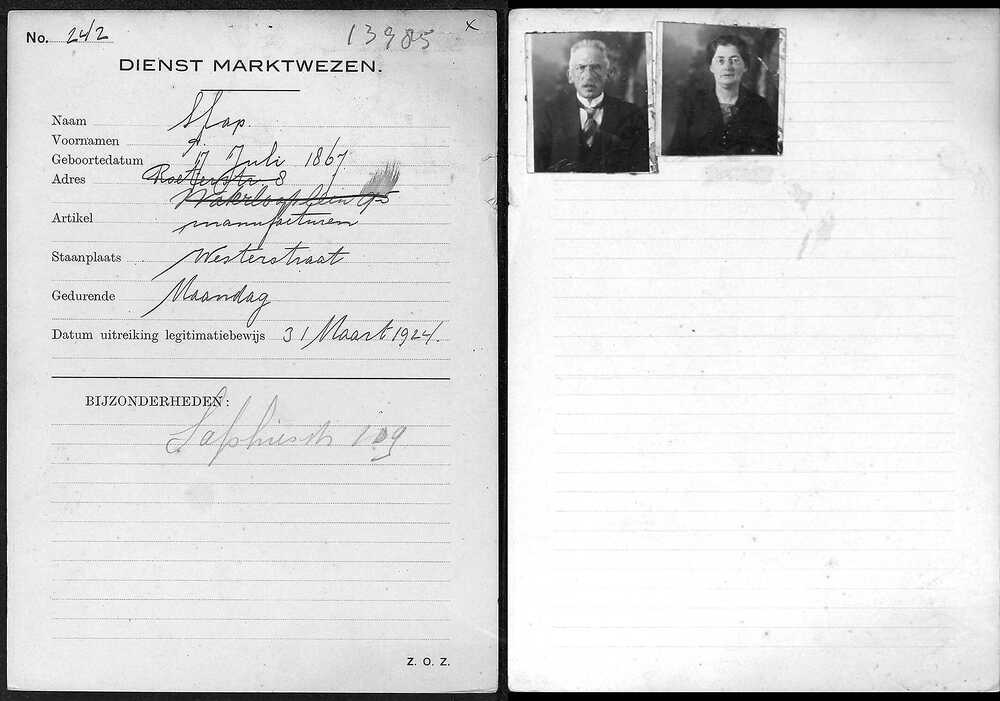 No. 242 13985 x
DIENST MARKTWEZEN.
Naam Slap.
Voornamen
Geboortedatum 17 Juli 1867
Adres Roeterstr. 8
Waterlooplein 95
Artikel manufacturen
Staanplaats Westerstraat
Gedurende Maandag
Datum uitreiking legitimatiebewijs 31 Maart 1924.
BIJZONDERHEDEN:
109
Z. O. Z.